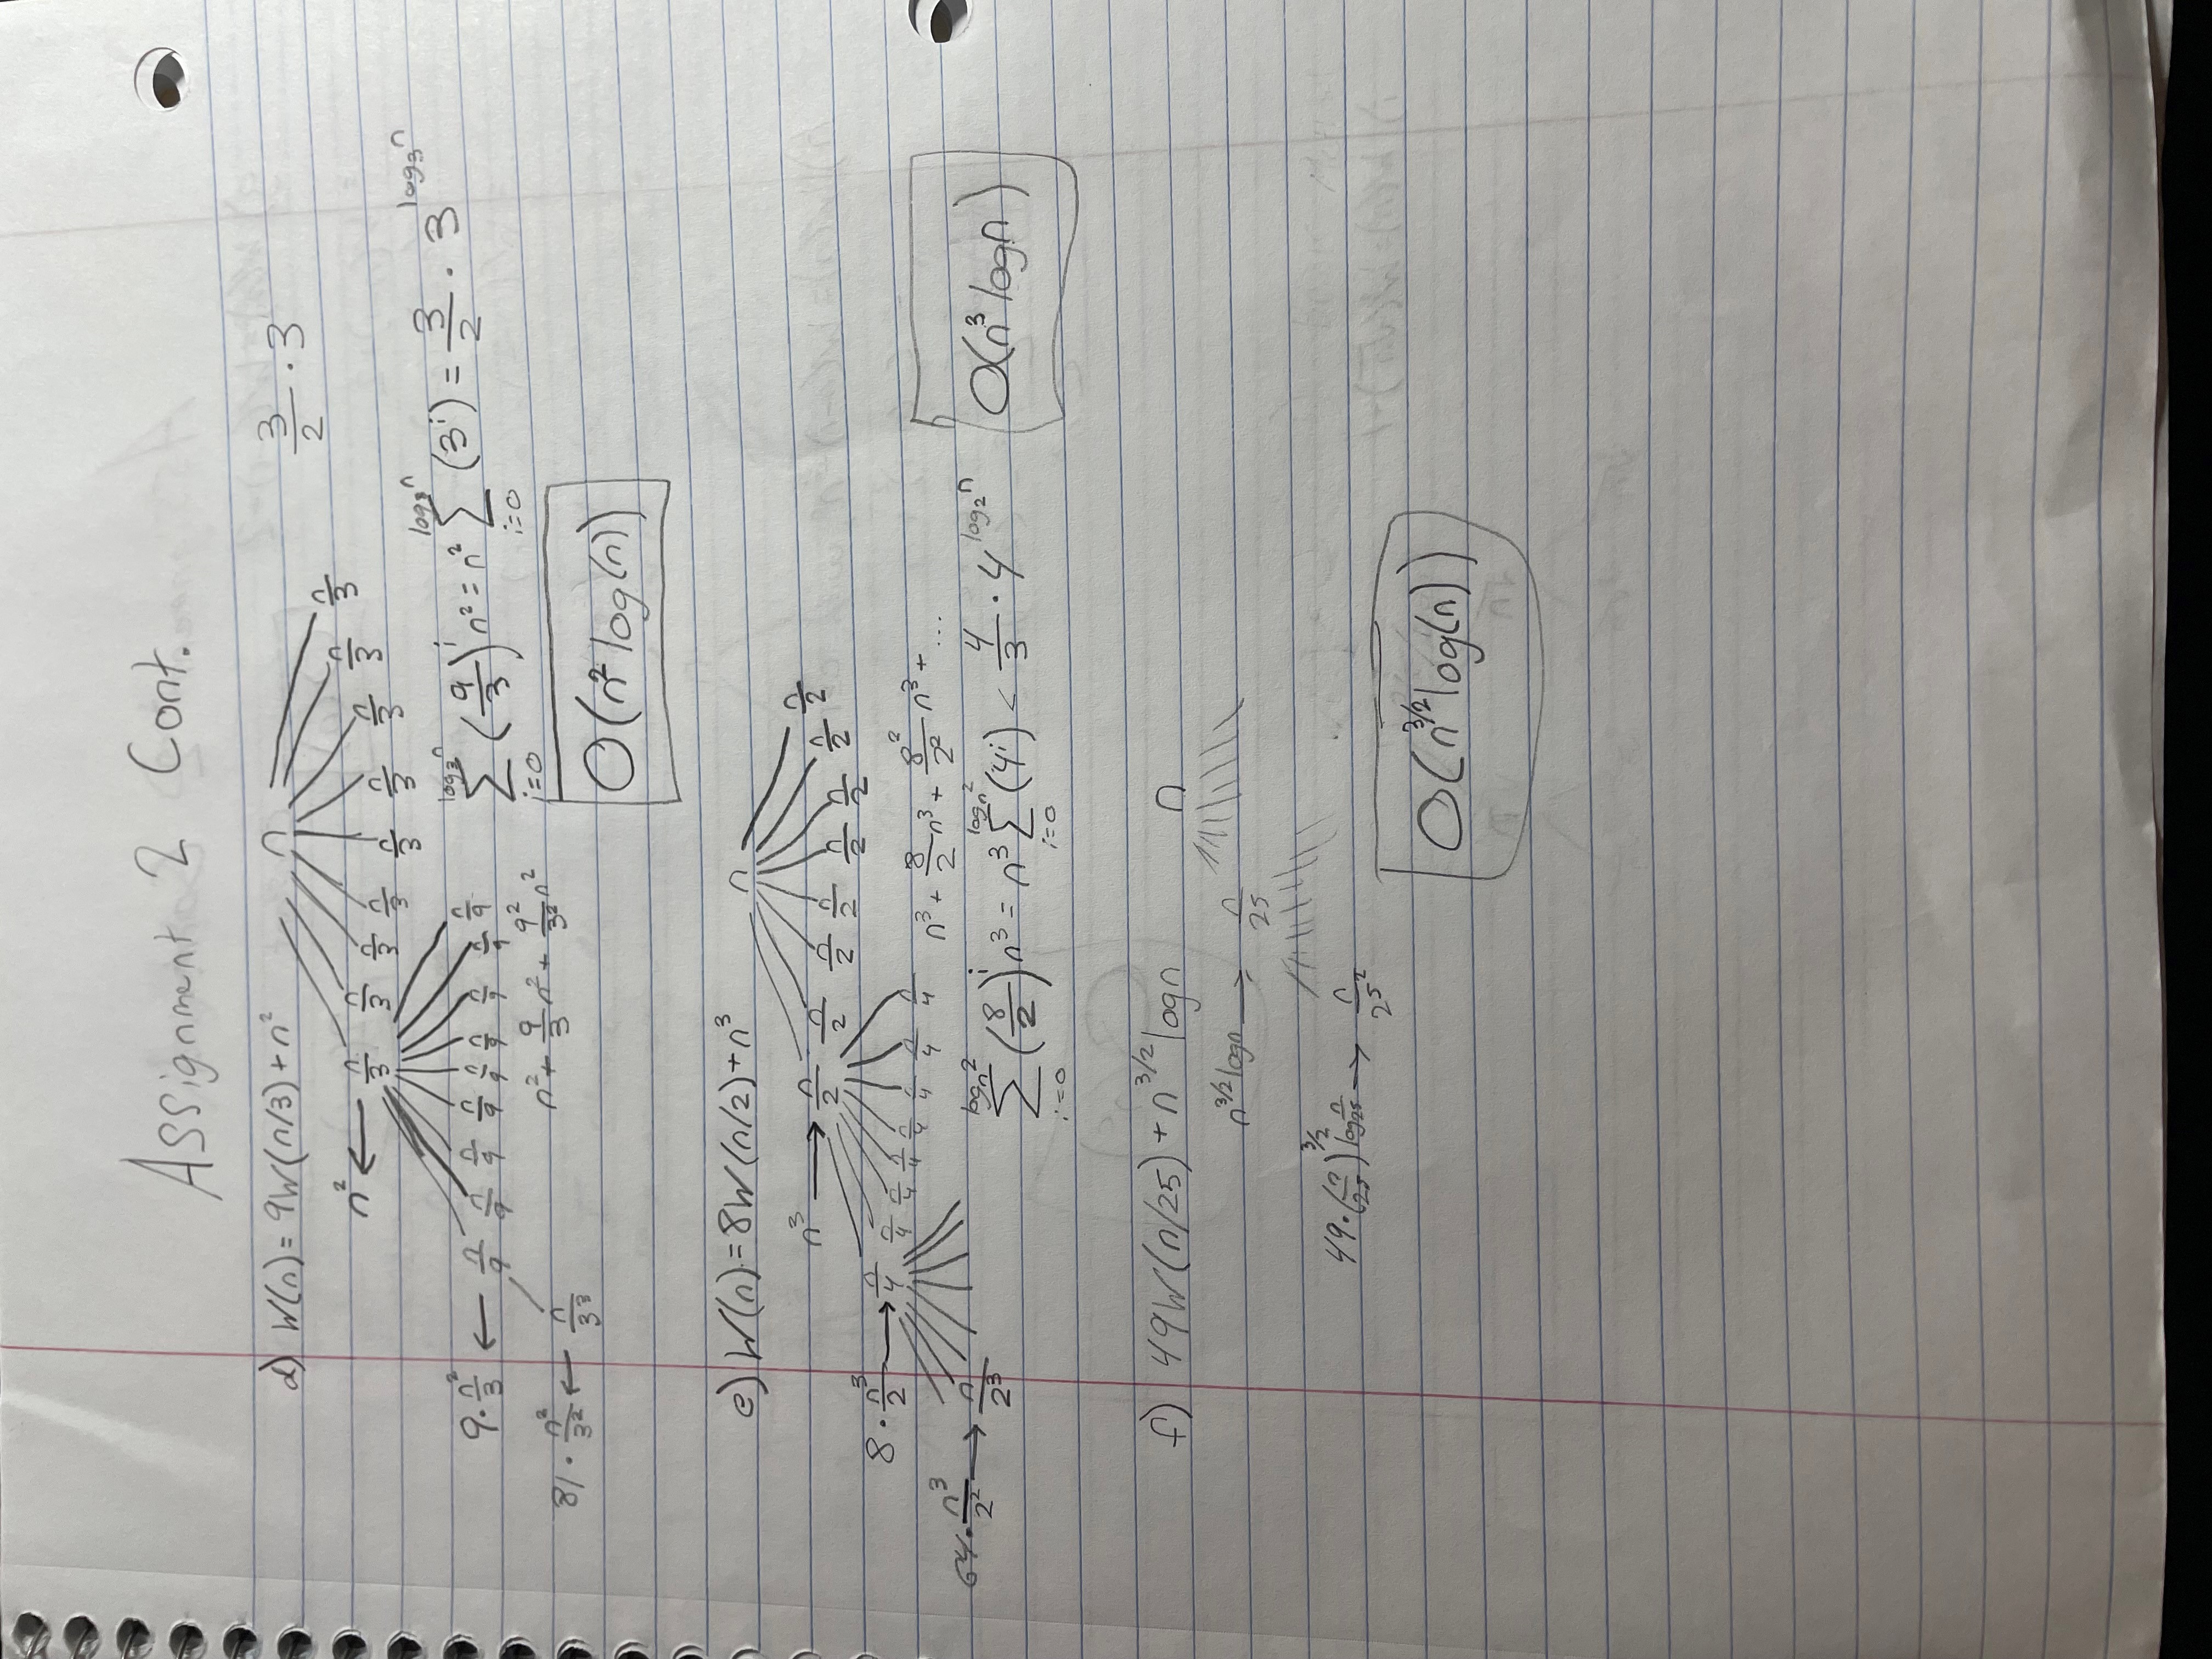 Assignment 2 Cont.
d) W(n) = 9W(n/3) + n²
3/2 · 3
n
n² ← n/3 n/3 n/3 n/3 n/3 n/3 n/3 n/3 n/3
9 · n/3² ← n/9 n/9 n/9 n/9 n/9 n/9 n/9 n/9 n/9
81 · n²/3² ← n/3³
n² + 9/3 n² + 9²/3² n²
∑_{i=0}^{log₃n} (9/3)^i n² = n² ∑_{i=0}^{log₃n} (3^i) = 3/2 · 3^{log₃n}
O(n² log(n))
e) W(n) = 8W(n/2) + n³
n
n³ → n/2 n/2 n/2 n/2 n/2 n/2 n/2 n/2
8 · n³/2 → n/4 n/4 n/4 n/4 n/4 n/4 n/4 n/4
64 · n³/2² → n/2³
n³ + 8/2 n³ + 8²/2² n³ + ...
∑_{i=0}^{log n²} (8/2)^i n³ = n³ ∑_{i=0}^{log n²} (4^i) < 4/3 · 4^{log₂n}
O(n³ log n)
f) 49W(n/25) + n^{3/2} log n
n
n^{3/2} log n → n/25
49 · (n/25)^{3/2} log n/25 → n/25²
O(n^{3/2} log(n))